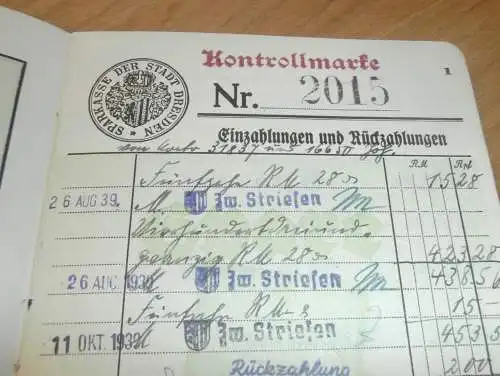 Kontrollmarke
1
SPARKASSE DER STADT DRESDEN
Nr. 2015
Einzahlungen und Rückzahlungen
von Konto 31837 und 16650
RM Rpf
Fünfzehn RM 28
15 28
26 AUG 39. Zw. Striesen
Vierhundertdreiund-
zwanzig RM 28
423 28
26 AUG. 1939 Zw. Striesen 438 56
Fünfzehn RM
15 -
11 OKT. 1939 Zw. Striesen 453 5
Rückzahlung 200